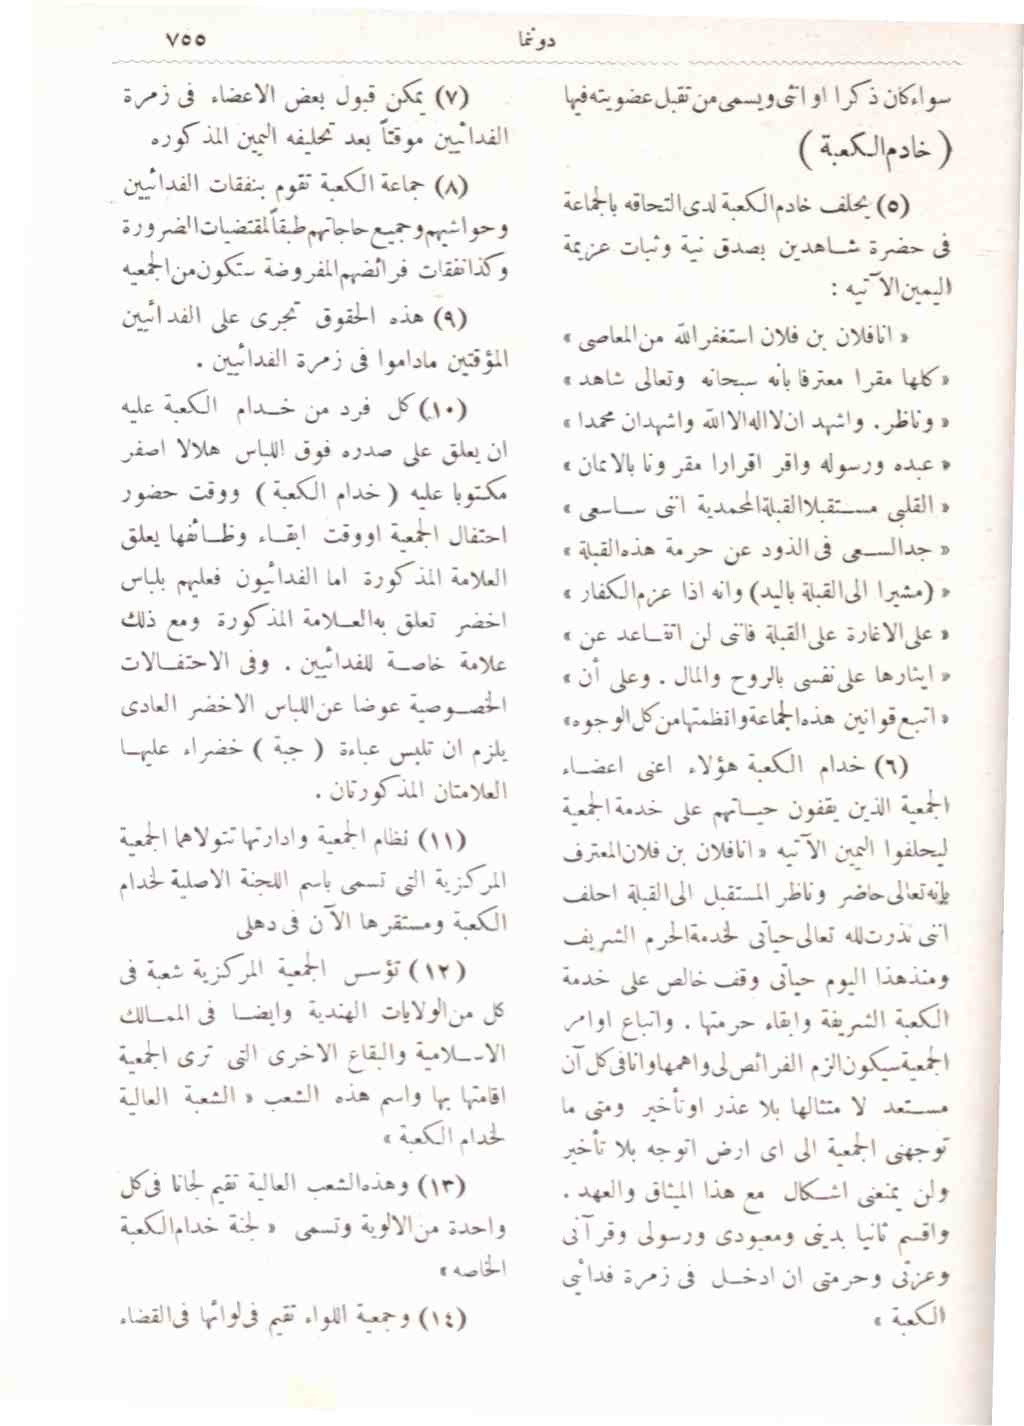 دونما
٧٥٥
سواءكان ذكرا او انثى ويسمى من تقبل عضويته فيها
( خادم الكعبة )
(٥) يحلف خادم الكعبة لدى التحاقه بالجماعة
فى حضرة شاهدين بصدق نية وثبات عزيمة
اليمين الآتيه :
« انافلان بن فلان استغفر الله من المعاصى »
« كلها مقرا معترفا بانه سبحانه وتعالى شاهد »
« وناظر. واشهد ان لااله الاالله واشهدان محمدا »
« عبده ورسوله واقر اقرارا مقرونا بالايمان »
« القلبى مستقبلاالقبلةالمحمدية اننى ساسعى »
« جدالسعى فى الذود عن حرمة هذه القبلة »
« (مشيرا الى القبلة باليد) وانه اذا عزم الكفار »
« على الاغارة على القبلة فانى لن اتقاعد عن »
« ايثارها على نفسى بالروح والمال . وعلى أن »
« اتبع قوانين هذه الجماعة وانظمتها من كل الوجوه»
(٦) خدام الكعبة هؤلاء اعنى اعضاء
الجمعية الذين يقفون حياتهم على خدمة الجمعية
ليحلفوا اليمين الآتيه « انافلان بن فلان المعترف
بإنه تعالى حاضر وناظر المستقبل الى القبلة احلف
اننى نذرت لله تعالى حياتى لخدمة الحرم الشريف
ومنذهذا اليوم حياتى وقف خالص على خدمة
الكعبة الشريفة وابقاء حرمتها . واتباع اوامر
الجمعية سيكون الزم الفرائص لى واهمها وانافى كل آن
مستعد لا متثالها بلا عذر اوتأخير ومتى ما
توجهنى الجمعية الى اى ارض اتوجه بلا تأخير
ولن يمنعنى اشكال مع هذا الميثاق والعهد .
واقسم ثانيا بدينى ومعبودى ورسولى وقرآنى
وعزتى وحرمتى ان ادخل فى زمرة فدائيى
الكعبة »
(٧) يمكن قبول بعض الاعضاء فى زمرة
الفدائيين موقتاً بعد تحليفه اليمين المذكوره
(٨) جماعة الكعبة تقوم بنفقات الفدائيين
وحواشيهم وجميع حاجاتهم طبقاً لمقتضيات الضرورة
وكذانفقات فرائضهم المفروضة ستكون من الجمعيه
(٩) هذه الحقوق تجرى على الفدائيين
المؤقتين ماداموا فى زمرة الفدائيين .
(١٠) كل فرد من خدام الكعبة عليه
ان يعلق على صدره فوق اللباس هلالا اصفر
مكتوبا عليه ( خدام الكعبة ) ووقت حضور
احتفال الجمعية اووقت ابقاء وظائفها يعلق
العلامة المذكورة اما الفدائيون فعليهم بلباس
اخضر تعلق به العلامة المذكورة ومع ذلك
علامة خاصة للفدائيين . وفى الاحتفالات
الخصوصية عوضا عن اللباس الاخضر العادى
يلزم ان تلبس عباءة ( جبة ) خضراء عليها
العلامتان المذكورتان .
(١١) نظام الجمعية وادارتها تتولاهما الجمعية
المركزية التى تسمى باسم اللجنة الاصلية لخدام
الكعبة ومستقرها الآن فى دهلى
(١٢) تؤسس الجمعية المركزية شعبة فى
كل من الولايات الهندية وايضا فى الممالك
الاسلامية والبقاع الاخرى التى ترى الجمعية
اقامتها بها واسم هذه الشعب « الشعبة العالية
لخدام الكعبة »
(١٣) وهذه الشعب العالية تقيم لجانا فى كل
واحدة من الالوية وتسمى « لجنة خدام الكعبة
الخاصه »
(١٤) وجمعية اللواء تقيم فى لوائها فى القضاء